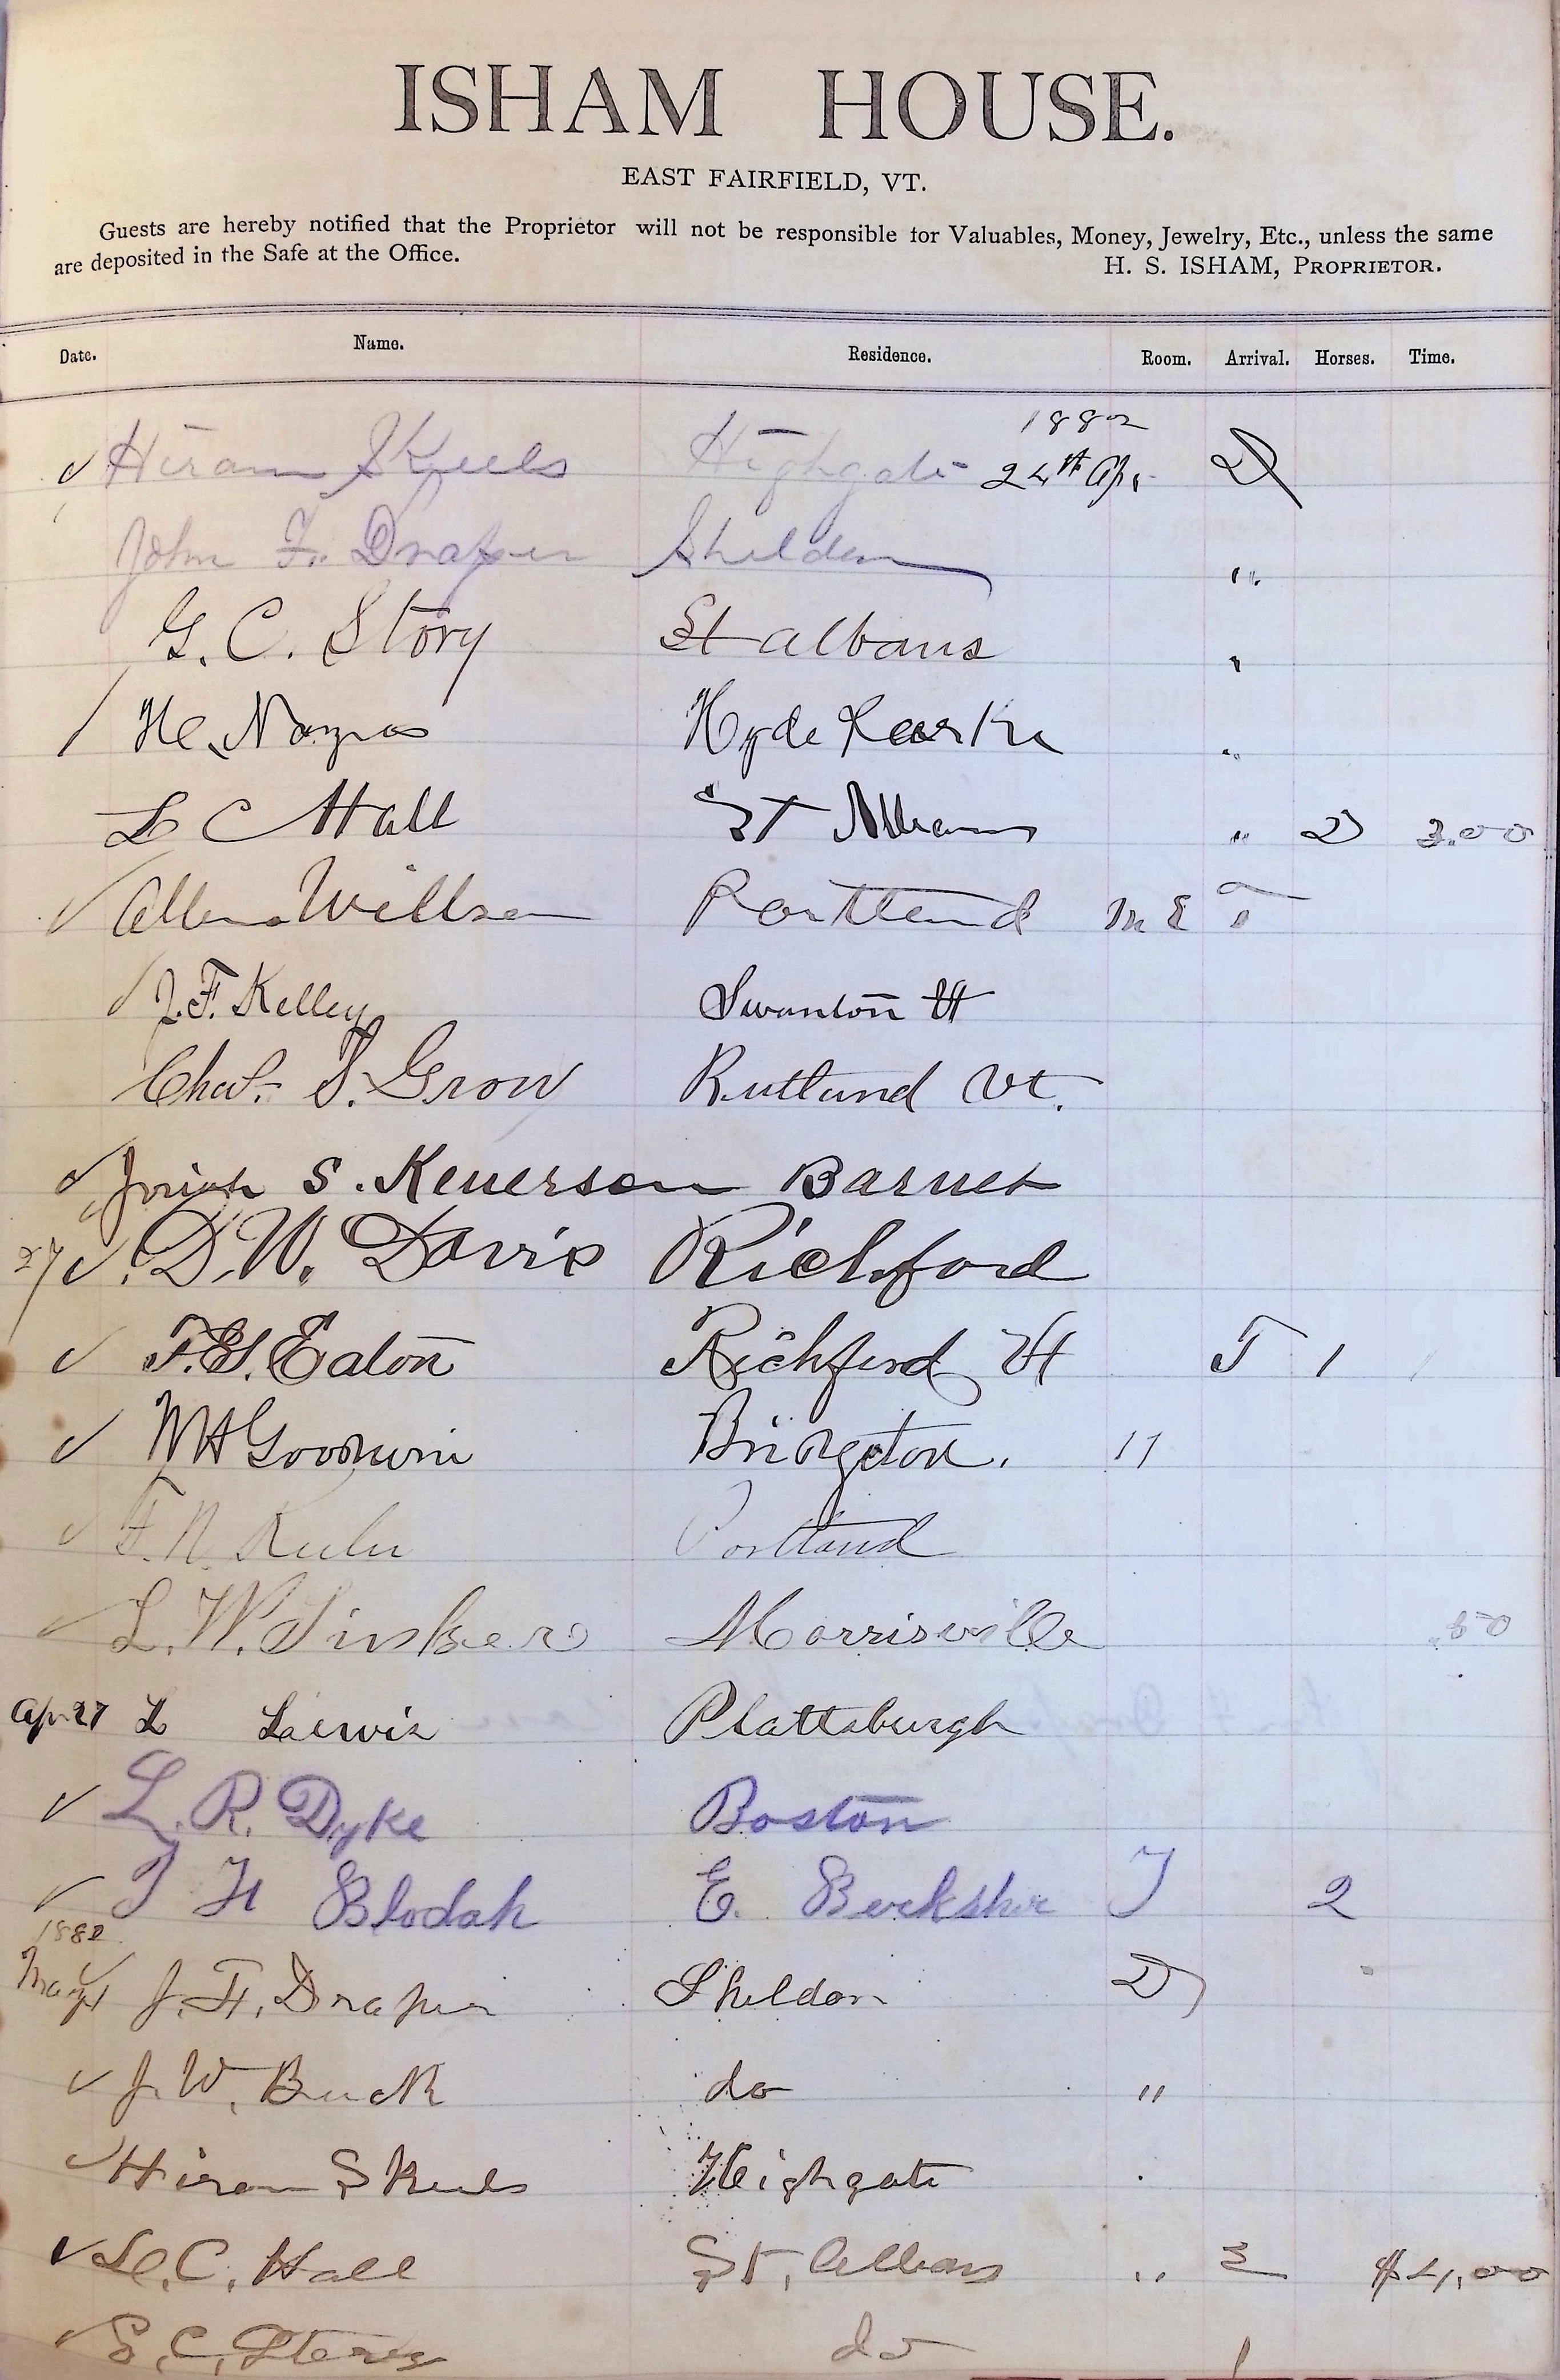 ISHAM HOUSE.
EAST FAIRFIELD, VT.
Guests are hereby notified that the Proprietor will not be responsible for Valuables, Money, Jewelry, Etc., unless the same
are deposited in the Safe at the Office.
H. S. ISHAM, PROPRIETOR.
Date. Name. Residence. Room. Arrival. Horses. Time.
1882
Hiram Skeels Highgate 24th Apr D
John F. Draper Sheldon "
G. C. Story St Albans "
Hyde Park "
L C Hall St Albans " 2 3.00
Willson Portland M E T
J. F. Kelley Swanton Vt
Chas. S. Grow Rutland Vt.
Josiah S. Kenerson Barnet
27 D. W. Davis Richford
F. G. Eaton Richford Vt T 1
W H Goodwin Bridgton. "
F. N. Portland
L. W. Morrisville .50
Apr 27 L Lewis Plattsburgh
L. R. Dyke Boston
T H Blodah E. Berkshir T 2
1882
May J. F. Draper Sheldon D
J. W. Buck do "
Hiram Skeels Heighgate
L. C. Hall St. Albans " 2 $4,00
do 1